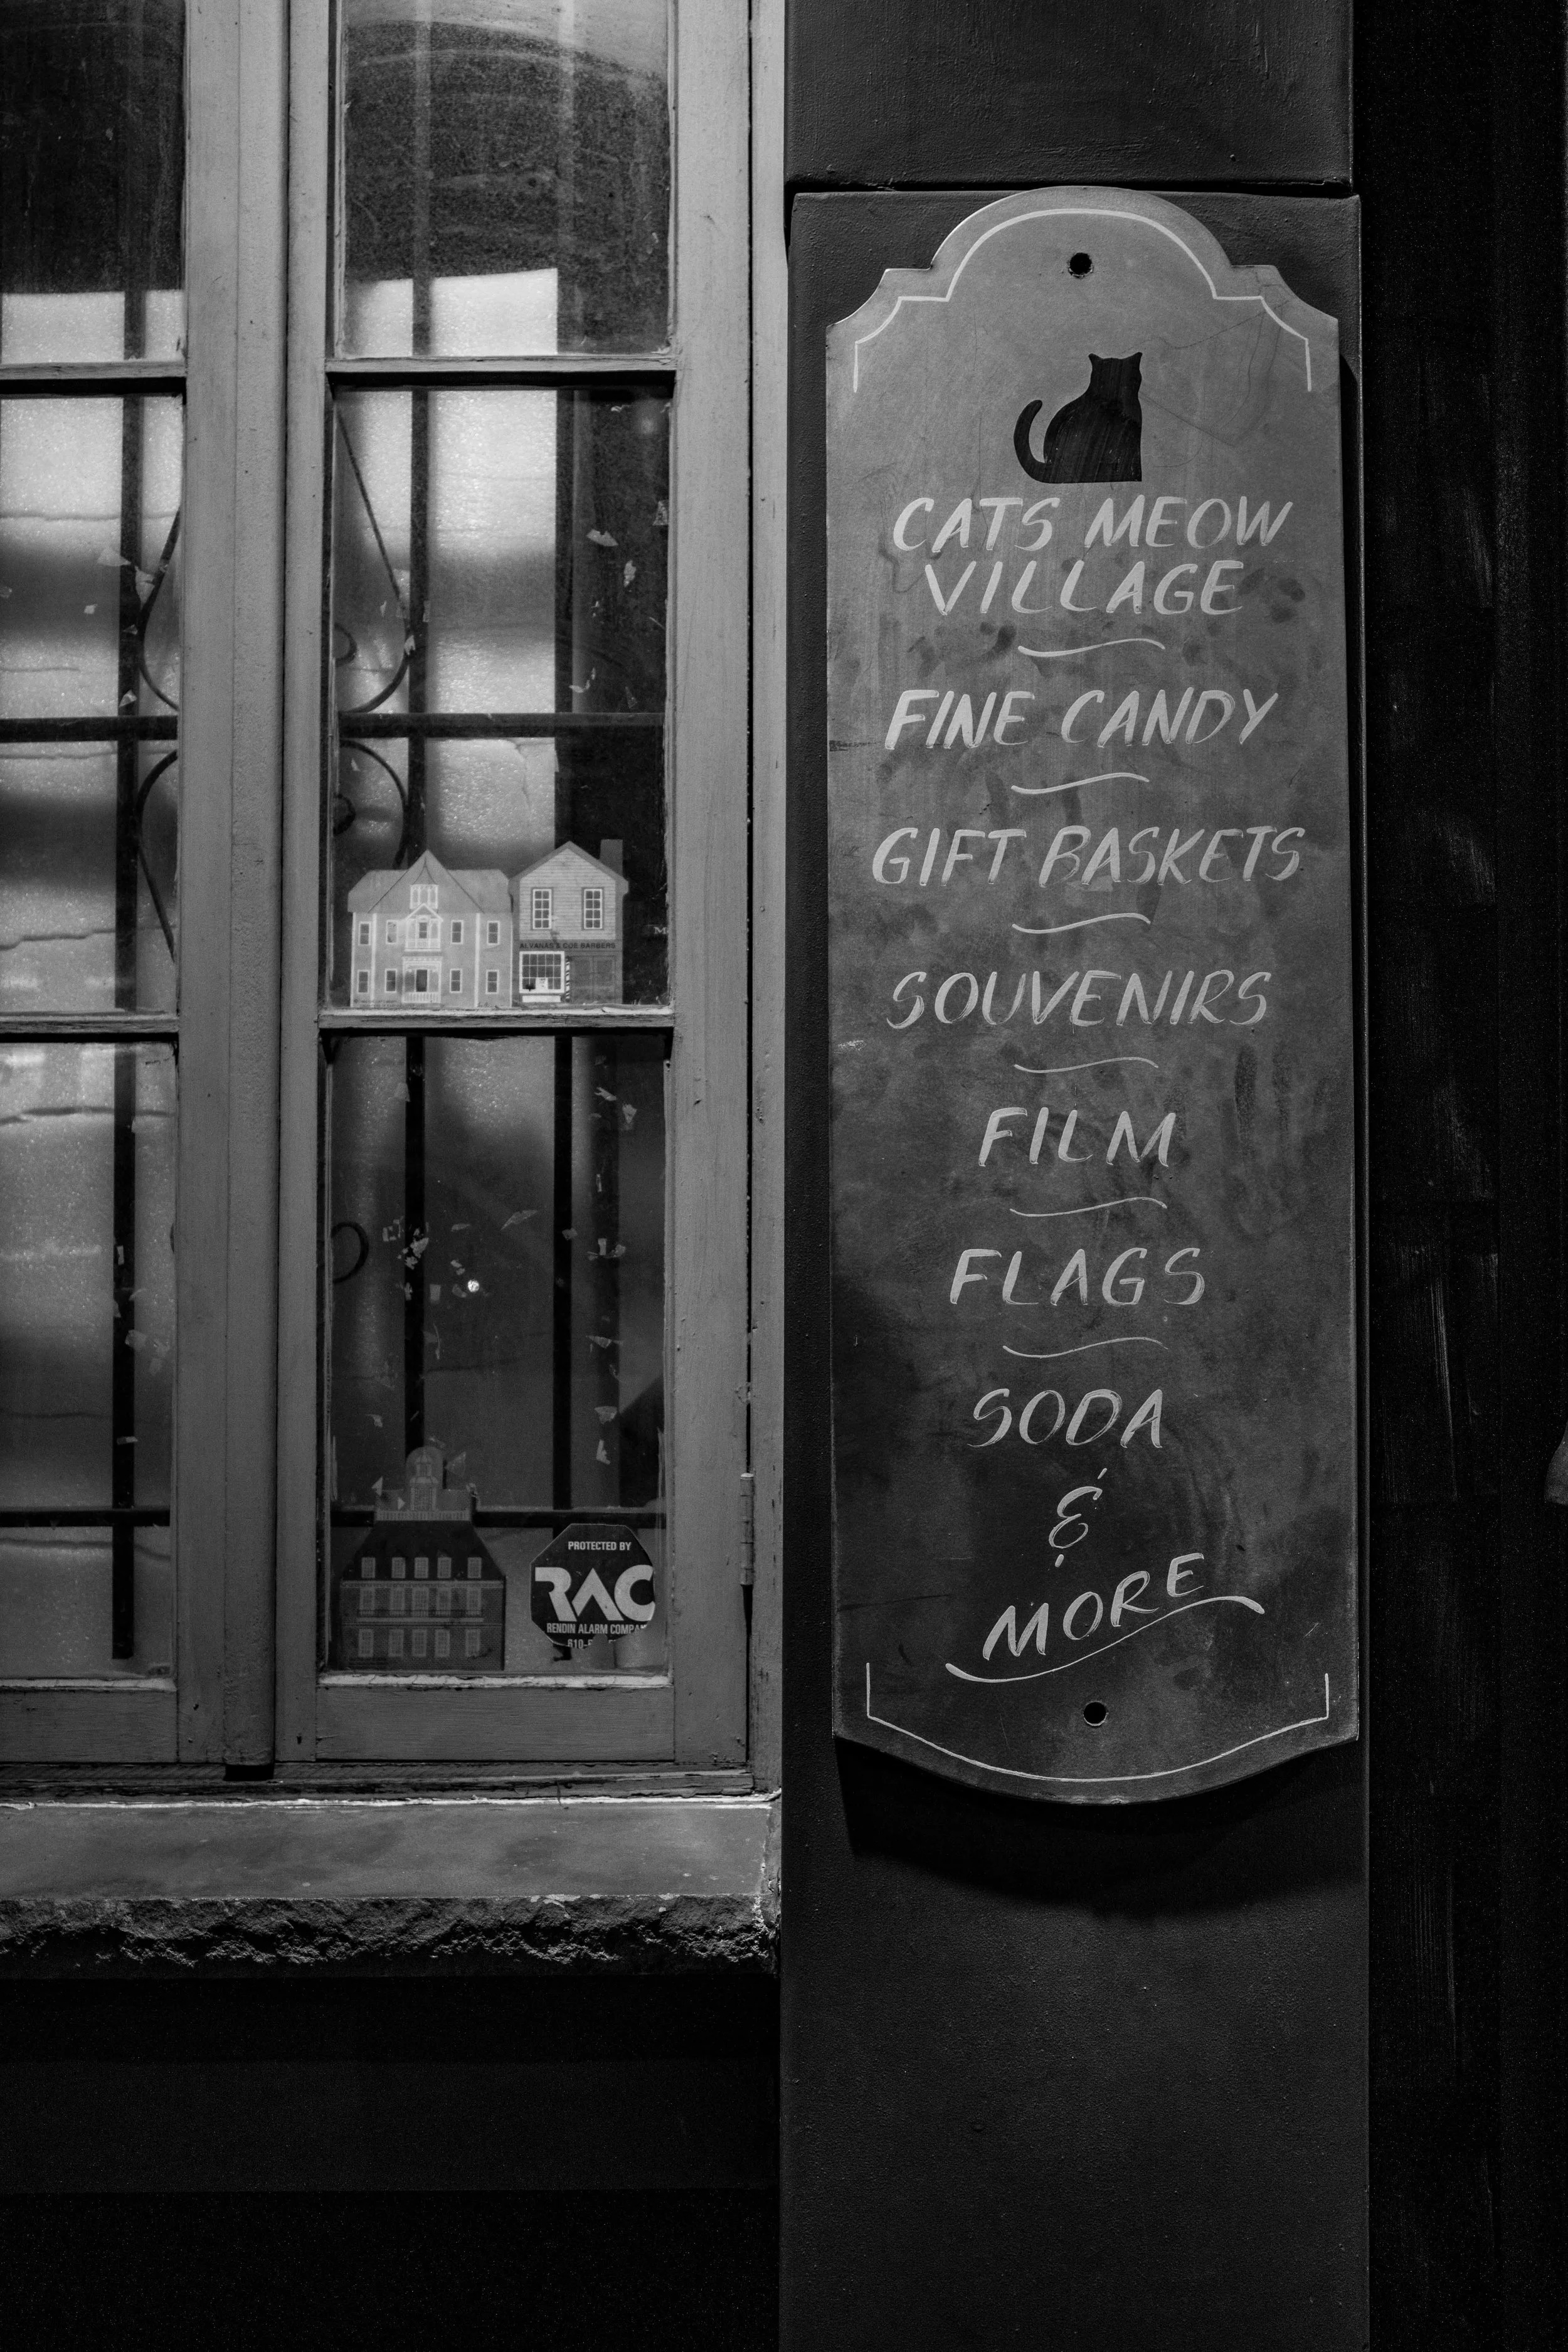 CATS MEOW
VILLAGE
FINE CANDY
GIFT BASKETS
SOUVENIRS
FILM
FLAGS
SODA
&
MORE
BARBERS
PROTECTED BY
RAC
RENDIN ALARM
610-